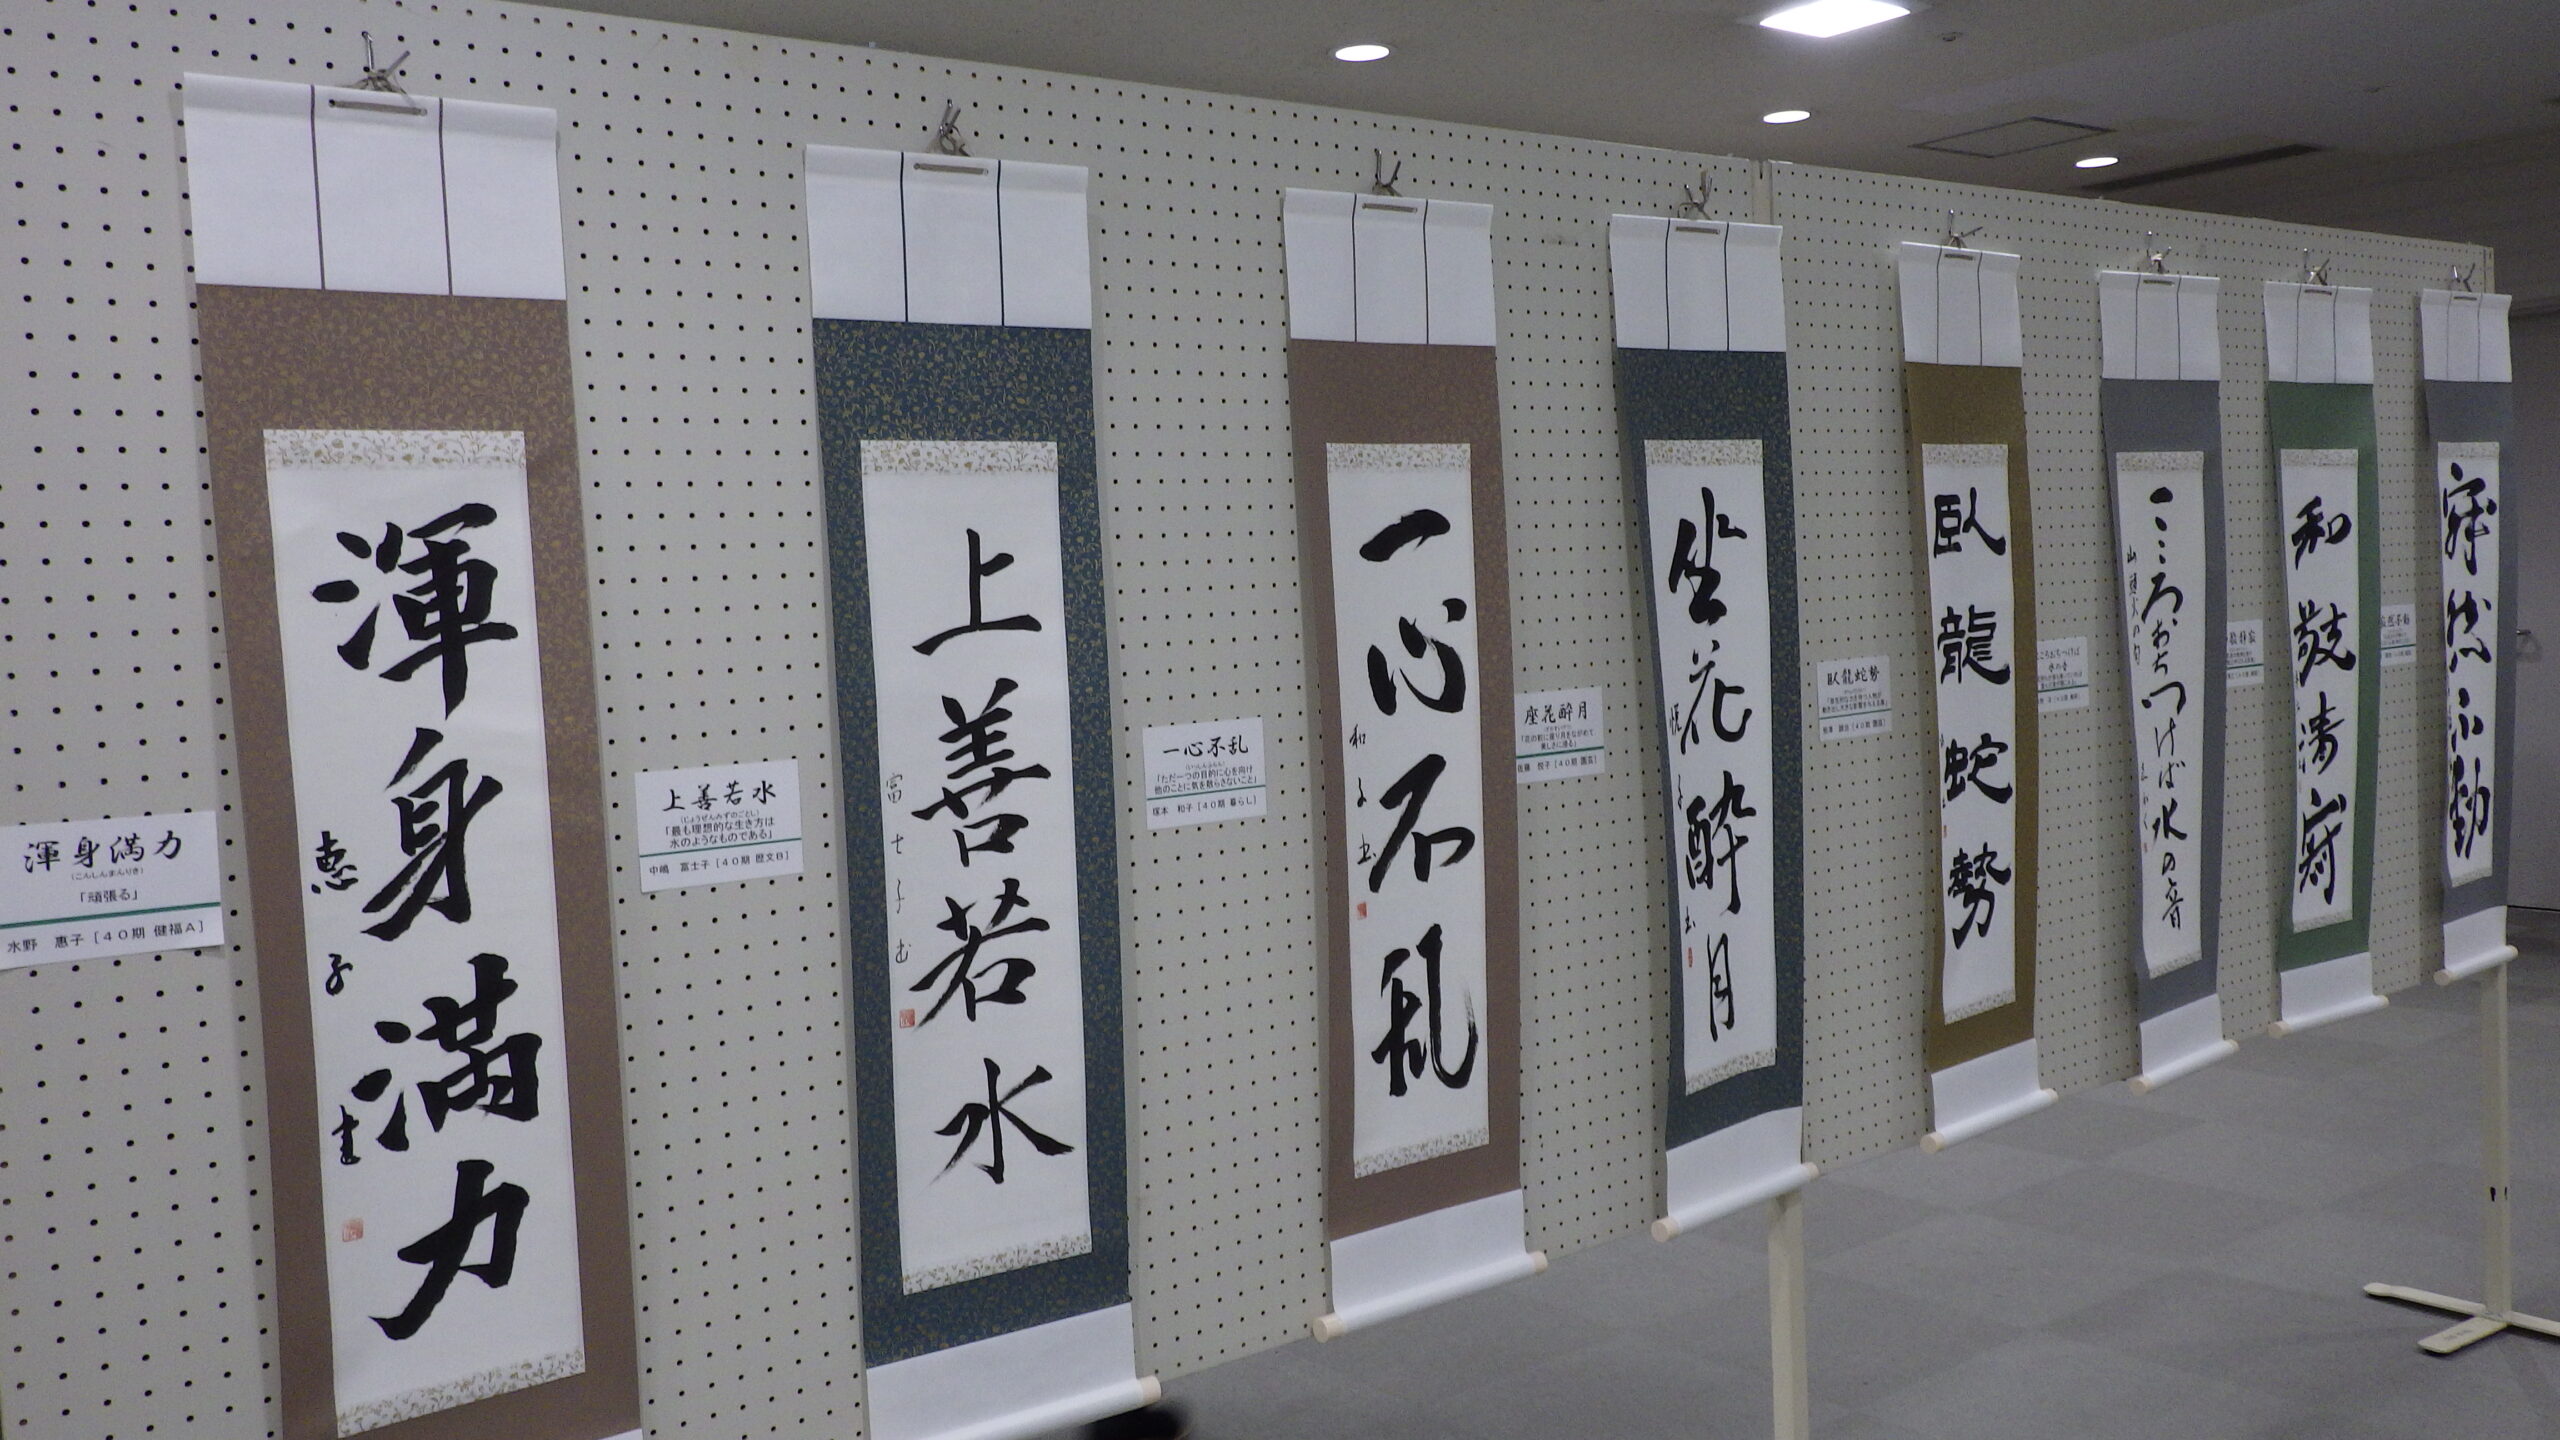 渾身満力
恵子書
渾身満力
(こんしんまんりき)
「頑張る」
水野 惠子[40期 健福A]
上善若水
富士子書
上善若水
(じょうぜんみずのごとし)
「最も理想的な生き方は
水のようなものである」
中嶋 富士子[40期 歴文B]
一心不乱
和子書
一心不乱
(いっしんふらん)
「ただ一つの目的に心を向け
他のことに気を散らさないこと」
塚本 和子[40期 暮らし]
坐花酔月
悦子書
座花酔月
「花の前に座り月をながめて
美しさに浸る」
佐藤 悦子[40期 園芸]
臥龍蛇勢
臥龍蛇勢
[40期 園芸]
こころおちつけば水の音
山頭火の句
こころおちつけば
水の音
和敬清寂
寂然不動
寂然不動